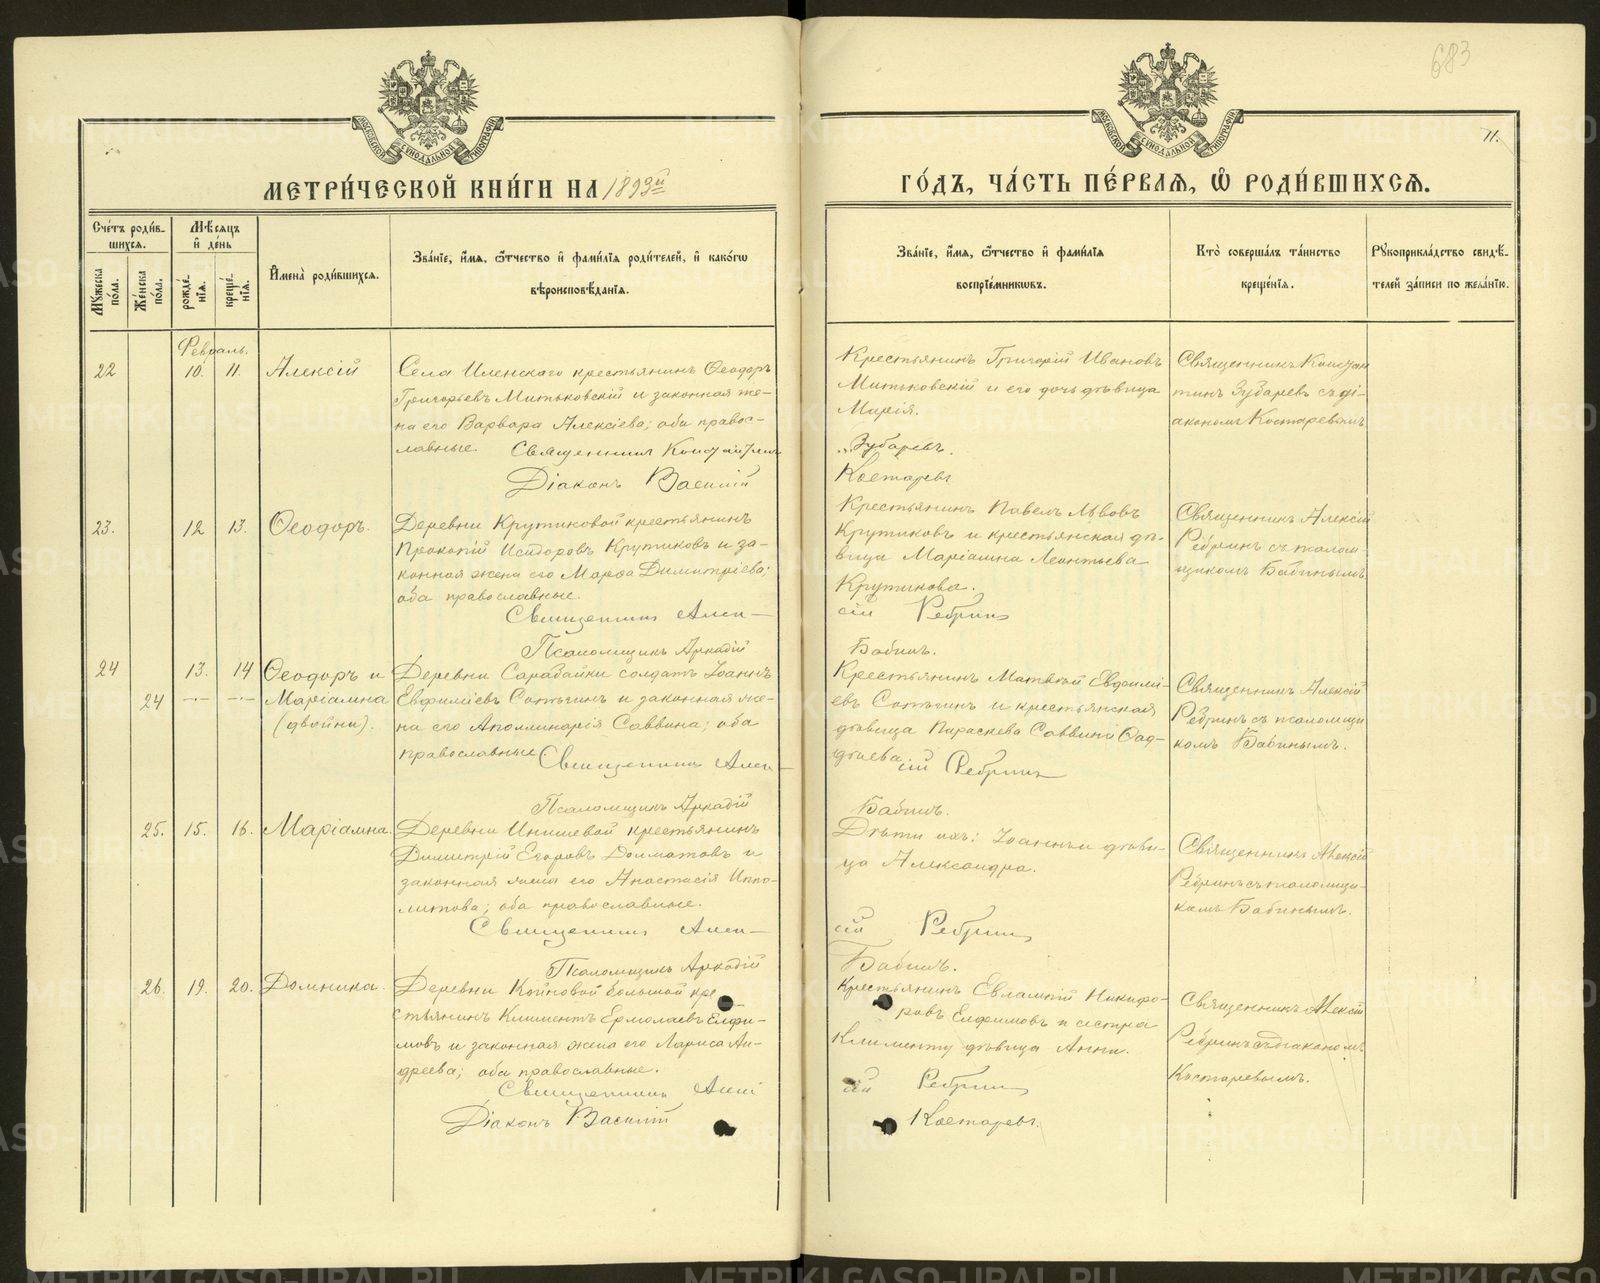 683
11.
МЕТРИ́ЧЕСКОЙ КНИ́ГИ НА 1893й
ГО́ДЪ, ЧА́СТЬ ПЕ́РВАЯ, Ѽ РОДИ́ВШИХСЯ.
МОСКОВСКОЙ СѴНОДАЛЬНОЙ ТИПОГРАФІИ
МОСКОВСКОЙ СѴНОДАЛЬНОЙ ТИПОГРАФІИ
Сче́тъ роди́в-
шихся.
Мꙋжеска по́ла.
Же́нска по́ла.
Мѣ́сяцъ
и҆ де́нь
рожде́-
нїѧ.
креще́-
нїѧ.
И҆мена̀ роди́вшихсѧ.
Зва́нїе, и҆́мѧ, ѻ҆́тчество и҆ фами́лїѧ роди́телей, и҆ како́гѡ
вѣроисповѣ́данїѧ.
Зва́нїе, и҆́мѧ, ѻ҆́тчество и҆ фами́лїѧ
воспрїе́мникѡвъ.
Кто̀ соверша́лъ та́инство
креще́нїѧ.
Рꙋкоприкла́дство свидѣ́-
телей за́писи по жела́нїю.
Февраль.
22
10. 11.
Алексій
Села Иленскаго крестьянинъ Ѳеодоръ
Григорьевъ Митьковскій и законная же-
на его Варвара Алексіева; оба правос-
лавные. Священникъ Константинъ
Діаконъ Василій
Крестьянинъ Григорій Ивановъ
Митьковскій и его дочь дѣвица
Марія.
Зубаревъ.
Костаревъ
Священникъ Констан
тинъ Зубаревъ съ ді-
акономъ Костаревымъ
23.
12 13.
Ѳеодоръ.
Деревни Крутиковой крестьянинъ
Прокопій Исидоровъ Крутиковъ и за-
конная жена его Марѳа Димитріева;
оба православные.
Священникъ Алек-
Псаломщикъ Аркадій
Крестьянинъ Павелъ Львовъ
Крутиковъ и крестьянская дѣ-
вица Маріамна Леонтьева
Крутикова.
сій Ребринъ
Бабинъ.
Священникъ Алексій
Ребринъ съ псалом-
щикомъ Бабинымъ
24
24
13. 14
Ѳеодоръ и
Маріамна
(двойни).
Деревни Сарабайки солдатъ Іоаннъ
Евфиміевъ Сотьгинъ и законная же-
на его Аполлинарія Саввина; оба
православные Священникъ Алек-
Псаломщикъ Аркадій
Крестьянинъ Матвѣй Евфимі-
евъ Сотьгинъ и крестьянская
дѣвица Параскева Саввина Ѳад-
дѣева сій Ребринъ
Бабинъ.
Священникъ Алексій
Ребринъ съ псаломщи
комъ Бабинымъ.
25.
15. 16.
Маріамна.
Деревни Инишевой крестьянинъ
Димитрій Егоровъ Долматовъ и
законная жена его Анастасія Иппо-
литова; оба православные.
Священникъ Алек-
Псаломщикъ Аркадій
Дѣти ихъ: Іоаннъ и дѣви-
ца Александра.
сій Ребринъ
Бабинъ.
Священникъ Алексій
Ребринъ съ псаломщи-
комъ Бабинымъ.
26.
19. 20.
Домника.
Деревни Койновой большой кре
стьянинъ Климентъ Ермолаевъ Елфи-
мовъ и законная жена его Лариса Ан-
дреева; оба православные.
Священникъ Алек
Діаконъ Василій
Крестьянинъ Евлампій Никифо-
ровъ Елфимовъ и сестра
Клименту дѣвица Анна.
сій Ребринъ
Костаревъ.
Священникъ Алексій
Ребринъ съ діакономъ
Костаревымъ.
METRIKI.GASO-URAL.RU